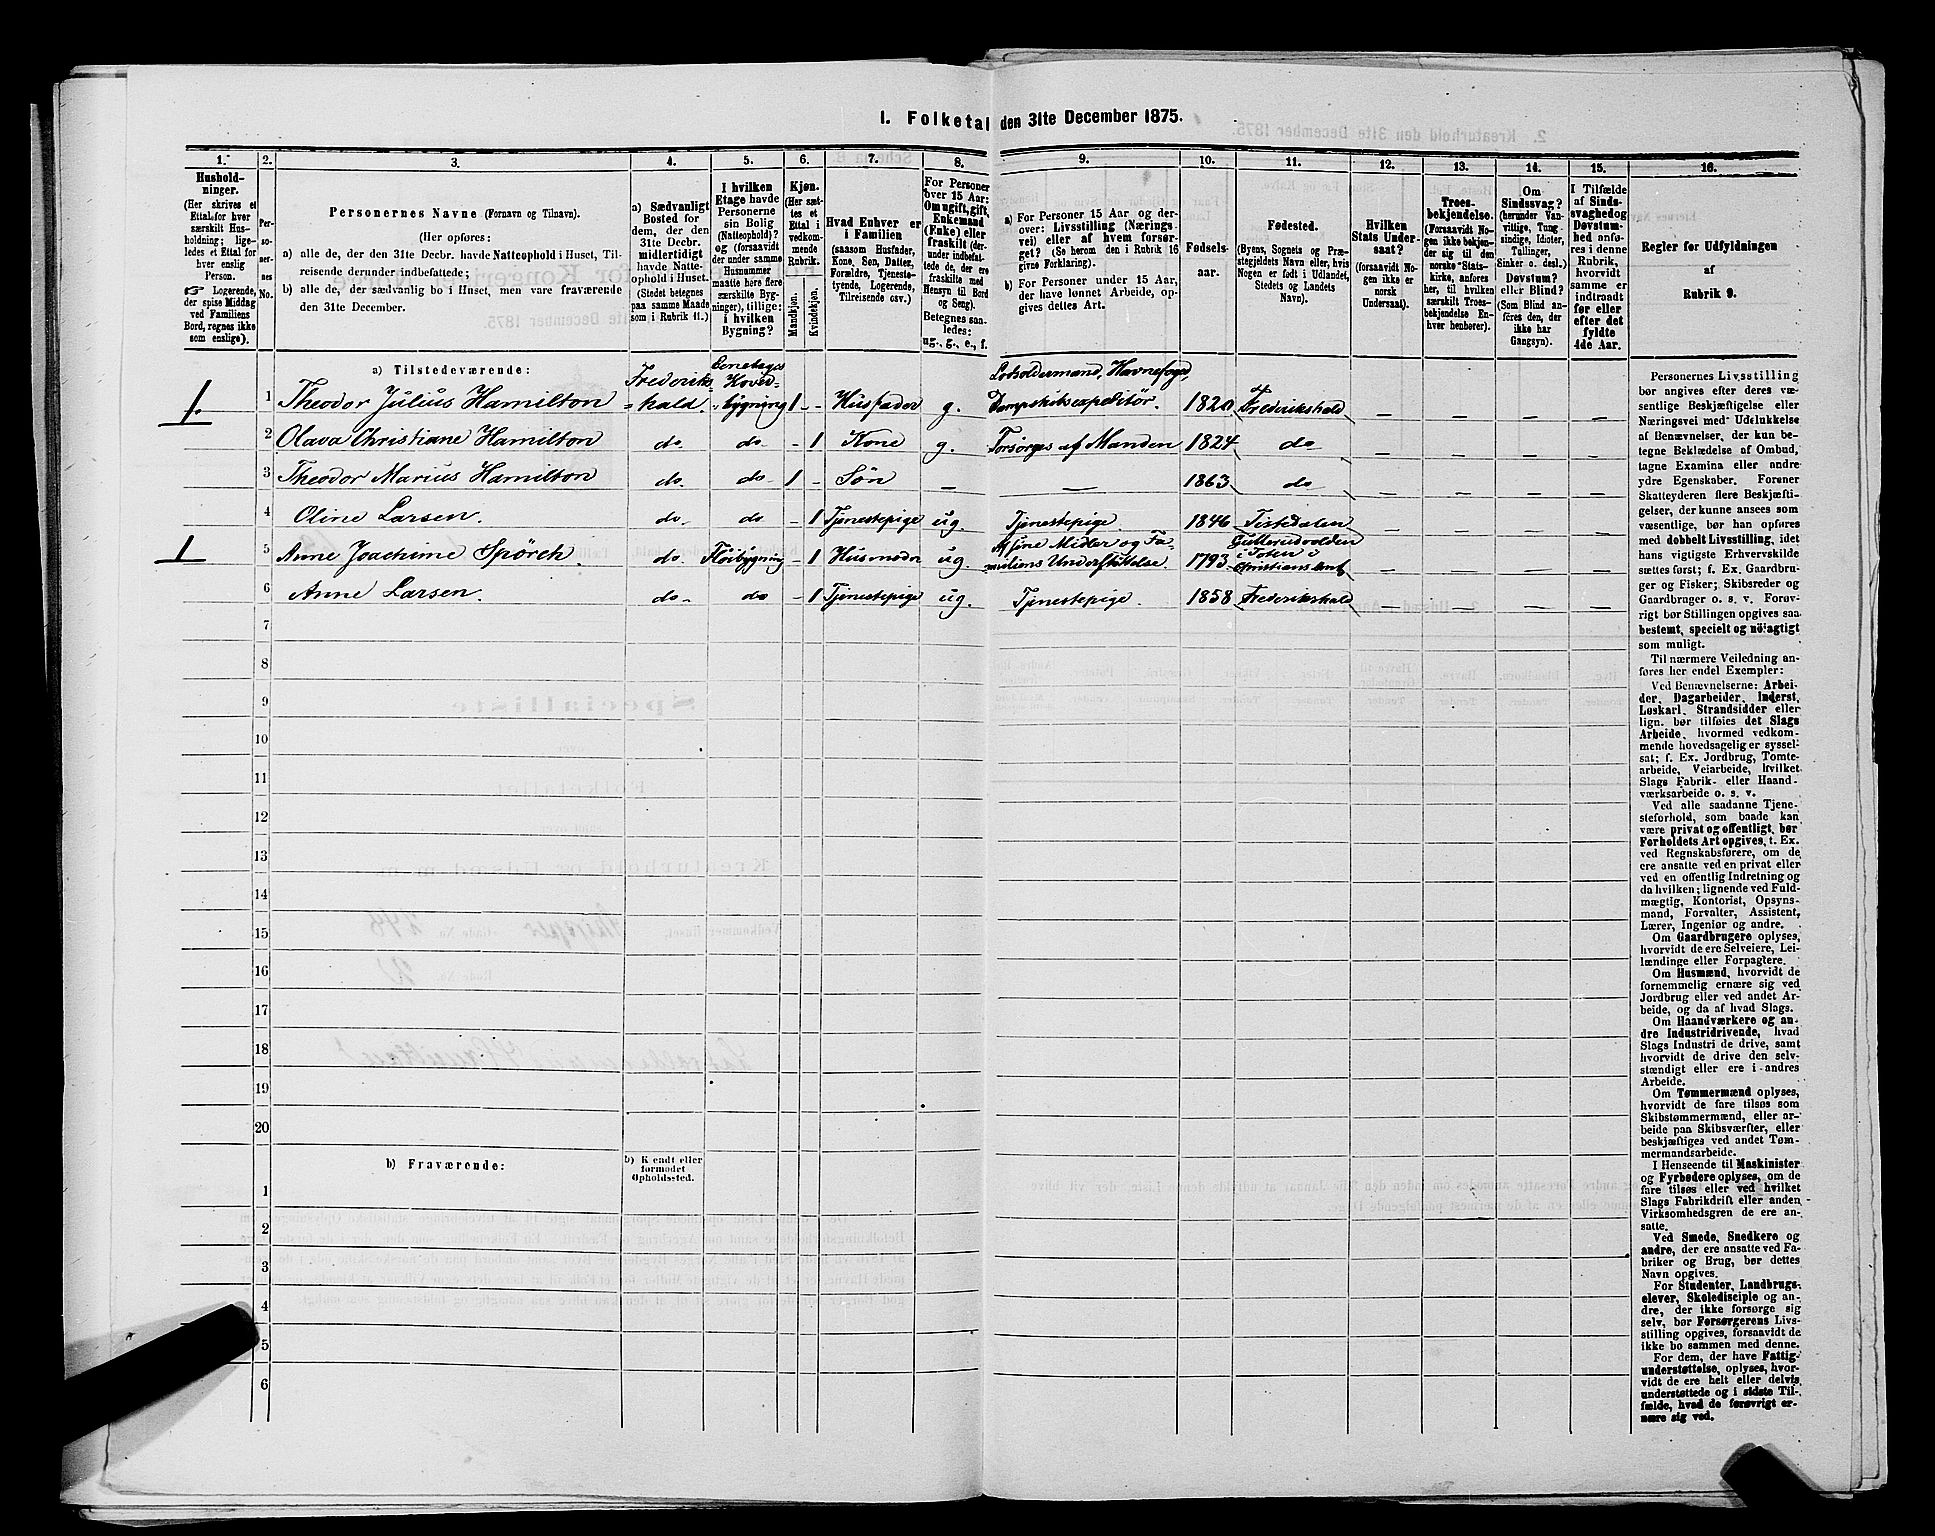 1. Folketal den 31te December 1875.
1. 2. 3. 4. 5. 6. 7. 8. 9. 10. 11. 12. 13. 14. 15. 16.
Hushold-
ninger.
(Her skrives et
Ettal for hver
særskilt Hus-
holdning; lige-
ledes et Ettal for
hver enslig
Person.
☞ Logerende,
der spise Middag
ved Familiens
Bord, regnes ikke
som enslige).
Per-
so-
ner-
nes
No.
Personernes Navne (Fornavn og Tilnavn).
(Her opføres:
a) alle de, der den 31te Decbr. havde Natteophold i Huset, Til-
reisende derunder indbefattede;
b) alle de, der sædvanlig bo i Huset, men vare fraværende
den 31te December.
a) Sædvanligt
Bosted for
dem, der den
31te Decbr.
midlertidigt
havde Natte-
ophold i Huset.
(Stedet betegnes
paa samme Maade
som i Rubrik 11.)
I hvilken
Etage havde
Personerne
sin Bolig
(Natteophold)?
og (forsaavidt
der under samme
Husnummer
maatte høre flere
særskilte Byg-
ninger), tillige:
i hvilken
Bygning?
Kjøn.
(Her sæt-
tes et
Ettal i
vedkom-
mende
Rubrik.
Mandkjøn.
Kvindekjøn.
Hvad Enhver er
i Familien
(saasom Husfader,
Kone, Søn, Datter,
Forældre, Tjeneste-
tyende, Logerende,
Tilreisende osv.)
For Personer
over 15 Aar:
Om ugift, gift,
Enkemand
(Enke) eller
fraskilt (der-
under indbefat-
tede de, der ere
fraskilte med
Hensyn til Bord
og Seng).
Betegnes saa-
ledes:
ug., g., e., f.
a) For Personer 15 Aar og der-
over: Livsstilling (Nærings-
vei) eller af hvem forsør-
get? (Se herom den i Rubrik 16
givne Forklaring).
b) For Personer under 15 Aar,
der have lønnet Arbeide, op-
gives dettes Art.
Fødsels-
aar.
Fødested.
(Byens, Sognets og Præ-
stegjeldets Navn eller, hvis
Nogen er født i Udlandet,
Stedets og Landets
Navn).
Hvilken
Stats Under-
saat?
(forsaavidt No-
gen ikke er
norsk
Undersaat).
Troes-
bekjendelse.
(Forsaavidt No-
gen ikke bekjen-
der sig til den
norske Stats-
kirke, anføres
her, til hvilken
særskilt Troes-
bekjendelse En-
hver henhører).
Om
Sindssvag?
(herunder Van-
vittige, Tung-
sindige, Idioter,
Tallinger,
Sinker o. desl.)
Døvstum?
eller Blind?
(Som Blind an-
føres den, der
ikke har
Gangsyn).
I Tilfælde
af Sinds-
svaghed og
Døvstum-
hed anfø-
res i denne
Rubrik,
hvorvidt
samme er
indtraadt
før eller
efter det
fyldte
4de Aar.
Regler for Udfyldningen
af
Rubrik 9.
a) Tilstedeværende:
1. 1 Theodor Julius Hamilton Frederiks=hald. Eenetages Hoved=bygning 1 - Husfader g. Lodsoldermand, Havnefoged, Dampskibsexpeditör. 1820 Frederikshald — — — —
2 Olava Christiane Hamilton do do - 1 Kone g. Forsörges af Manden 1824 do — — — —
3 Theodor Marius Hamilton do. do 1 - Sön — — 1863 do — — — —
4 Oline Larsen. do- do - 1 Tjenestepige ug. Tjenestepige. 1846 Tistedalen — — — —
1 5 Anne Joachime Spörck do. Flöibygning - 1 Husmoder ug. Af sine Midler og Fa=miliens Understöttelse. 1793 i Toten i Christians Amt — — — —
6 Anne Larsen. do- do - 1 Tjenestepige ug. Tjenestepige. 1858 Frederikshald — — — —
7
8
9
10
11
12
13
14
15
16
17
18
19
20
b) Fraværende:
b) Kjendt eller
formodet
Opholdssted.
1
2
3
4
5
6
Personernes Livsstilling
bør angives efter deres væ-
sentlige Beskjæftigelse eller
Næringsvei med Udelukkelse
af Benævnelser, der kun be-
tegne Beklædelse af Ombud,
tagne Examina eller andre
ydre Egenskaber. Forener
Skatteyderen flere Beskjæfti-
gelser, der kunne ansees som
væsentlige, bør han opføres
med dobbelt Livsstilling, idet
hans vigtigste Erhvervskilde
sættes først; f. Ex. Gaardbru-
ger og Fisker; Skibsreder og
Gaardbruger o. s. v. Forøv-
rigt bør Stillingen opgives saa
bestemt, specielt og nøiagtigt
som muligt.
Til nærmere Veiledning an-
føres her endel Exempler:
Ved Benævnelserne: Arbei-
der, Dagarbeider, Inderst,
Løskarl, Strandsidder eller
lign. bør tilføies det Slags
Arbeide, hvormed vedkom-
mende hovedsagelig er syssel-
sat; f. Ex. Jordbrug, Tomte-
arbeide, Veiarbeide, hvilket
Slags Fabrik- eller Haand-
værksarbeide o. s. v.
Ved alle saadanne Tjene-
steforhold, som baade kan
være privat og offentligt, bør
Forholdets Art opgives, t. Ex.
ved Regnskabsførere, om de
ere ansatte ved en privat eller
ved en offentlig Indretning og
da hvilken; lignende ved Fuld-
mægtig, Kontorist, Opsyns-
mand, Forvalter, Assistent,
Lærer, Ingeniør og andre.
Om Gaardbrugere oplyses,
hvorvidt de ere Selveiere, Lei-
lændinge eller Forpagtere.
Om Husmænd, hvorvidt de
fornemmelig ernære sig ved
Jordbrug eller ved andet Ar-
beide, og da af hvad Slags.
Om Haandværkere og an-
dre Industridrivende, hvad
Slags Industri de drive, samt
hvorvidt de drive den selv-
stændigt eller ere i andres
Arbeide.
Om Tømmermænd oplyses,
hvorvidt de fare tilsøs som
Skibstømmermænd, eller ar-
beide paa Skibsværfter, eller
beskjæftiges ved andet Tøm-
mermandsarbeide.
I Henseende til Maskinister
og Fyrbødere oplyses, om de
fare tilsøs eller ved hvilket
Slags Fabrikdrift eller anden
Virksomhedsgren de ere an-
satte.
Ved Smede, Snedkere og
andre, der ere ansatte ved Fa-
briker og Brug, bør dettes
Navn opgives.
For Studenter, Landbrugs-
elever, Skoledisciple og an-
dre, der ikke forsørge sig
selv, bør Forsørgerens Livs-
stilling opgives, forsaavidt de
ikke bo sammen med denne.
For dem, der have Fattig-
understøttelse, oplyses, hvor-
vidt de ere helt eller delvis
understøttede og i sidste Til-
fælde, hvad de forøvrigt er-
nære sig ved.